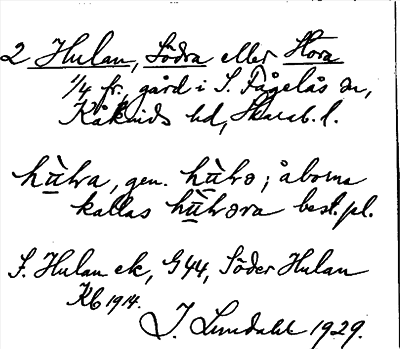 2 Hulan, Södra eller Stora
1/4 fr, gård i S. Fågelås sn,
Kåkinds hd, Skarab. l.
hùlra, gen. hùlrə; åborna
kallas hùlrəra best. pl.
S. Hulan ek, G44, Söder Hulan
Kb 1914.
I. Lundahl 1929.